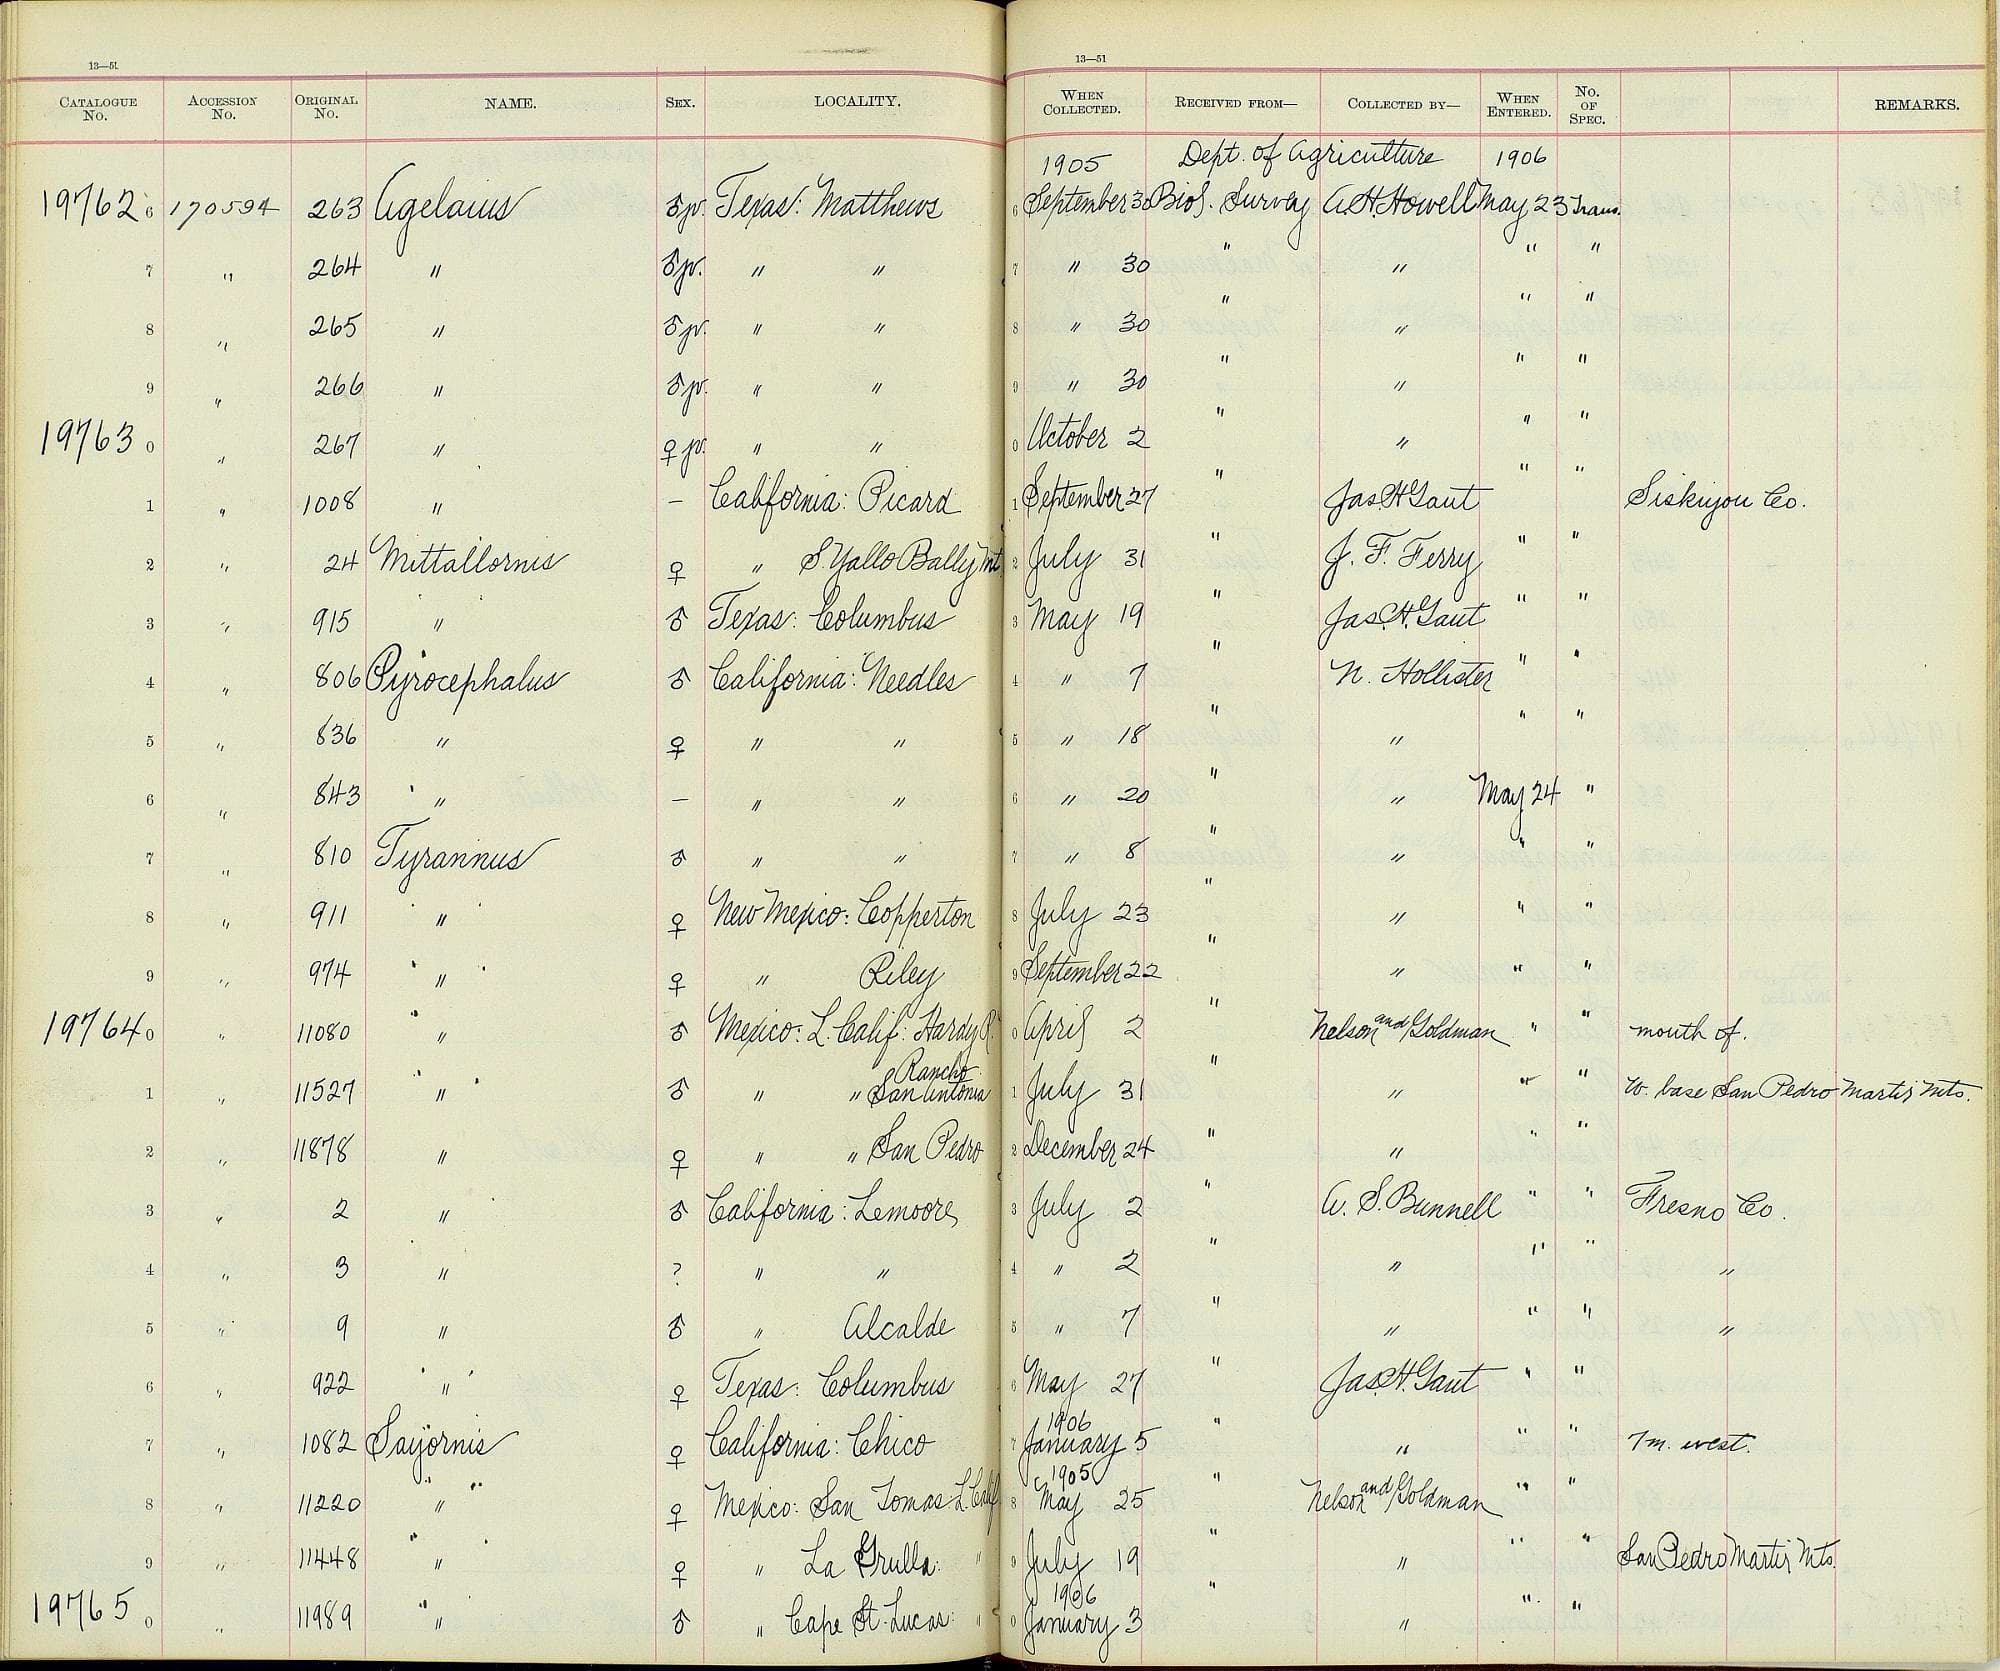 13—51
13—51
CATALOGUE No. ACCESSION No. ORIGINAL No. NAME. SEX. LOCALITY. WHEN COLLECTED. RECEIVED FROM— COLLECTED BY— WHEN ENTERED. No. OF SPEC. REMARKS.
1905 Dept. of Agriculture 1906
19762 6 170594 263 Agelaius ♂ jv. Texas: Matthews 6 September 30 Biol. Survey A H Howell May 23 Trans.
7 " 264 " ♂ jv. " " 7 " 30 " " " "
8 " 265 " ♂ jv. " " 8 " 30 " " " "
9 " 266 " ♂ jv. " " 9 " 30 " " " "
19763 0 " 267 " ♀ jv. " " 0 October 2 " " " "
1 " 1008 " — California: Picard 1 September 27 " Jas. H Gaut " " Siskiyou Co.
2 " 24 Nuttallornis ♀ " S. Yallo Bally Mt. 2 July 31 " J. F. Ferry " "
3 " 915 " ♂ Texas: Columbus 3 May 19 " Jas. H. Gaut " "
4 " 806 Pyrocephalus ♂ California: Needles 4 " 7 " N. Hollister " "
5 " 836 " ♀ " " 5 " 18 " " " "
6 " 843 " — " " 6 " 20 " " May 24 "
7 " 810 Tyrannus ♂ " " 7 " 8 " " " "
8 " 911 " ♀ New Mexico: Copperton 8 July 23 " " " "
9 " 974 " ♀ " Riley 9 September 22 " " " "
19764 0 " 11080 " ♂ Mexico: L. Calif: Hardy R. 0 April 2 " Nelson and Goldman " " mouth of.
1 " 11527 " ♂ " " Rancho San Antonia 1 July 31 " " " " W. base San Pedro Martir Mts.
2 " 11878 " ♀ " " San Pedro 2 December 24 " " " "
3 " 2 " ♂ California: Lemoore 3 July 2 " A. S. Bunnell " " Fresno Co.
4 " 3 " ? " " 4 " 2 " " " " "
5 " 9 " ♂ " Alcalde 5 " 7 " " " " "
6 " 922 " ♀ Texas: Columbus 6 May 27 " Jas. H. Gaut " "
1906
7 " 1082 Sayornis ♀ California: Chico 7 January 5 " " " " 7 m. west.
1905
8 " 11220 " ♀ Mexico: San Tomas L. Calif 8 May 25 " Nelson and Goldman " "
9 " 11448 " ♀ " La Grulla: " 9 July 19 " " " " San Pedro Martir Mts.
1906
19765 0 " 11989 " ♂ " Cape St. Lucas: " 0 January 3 " " " "